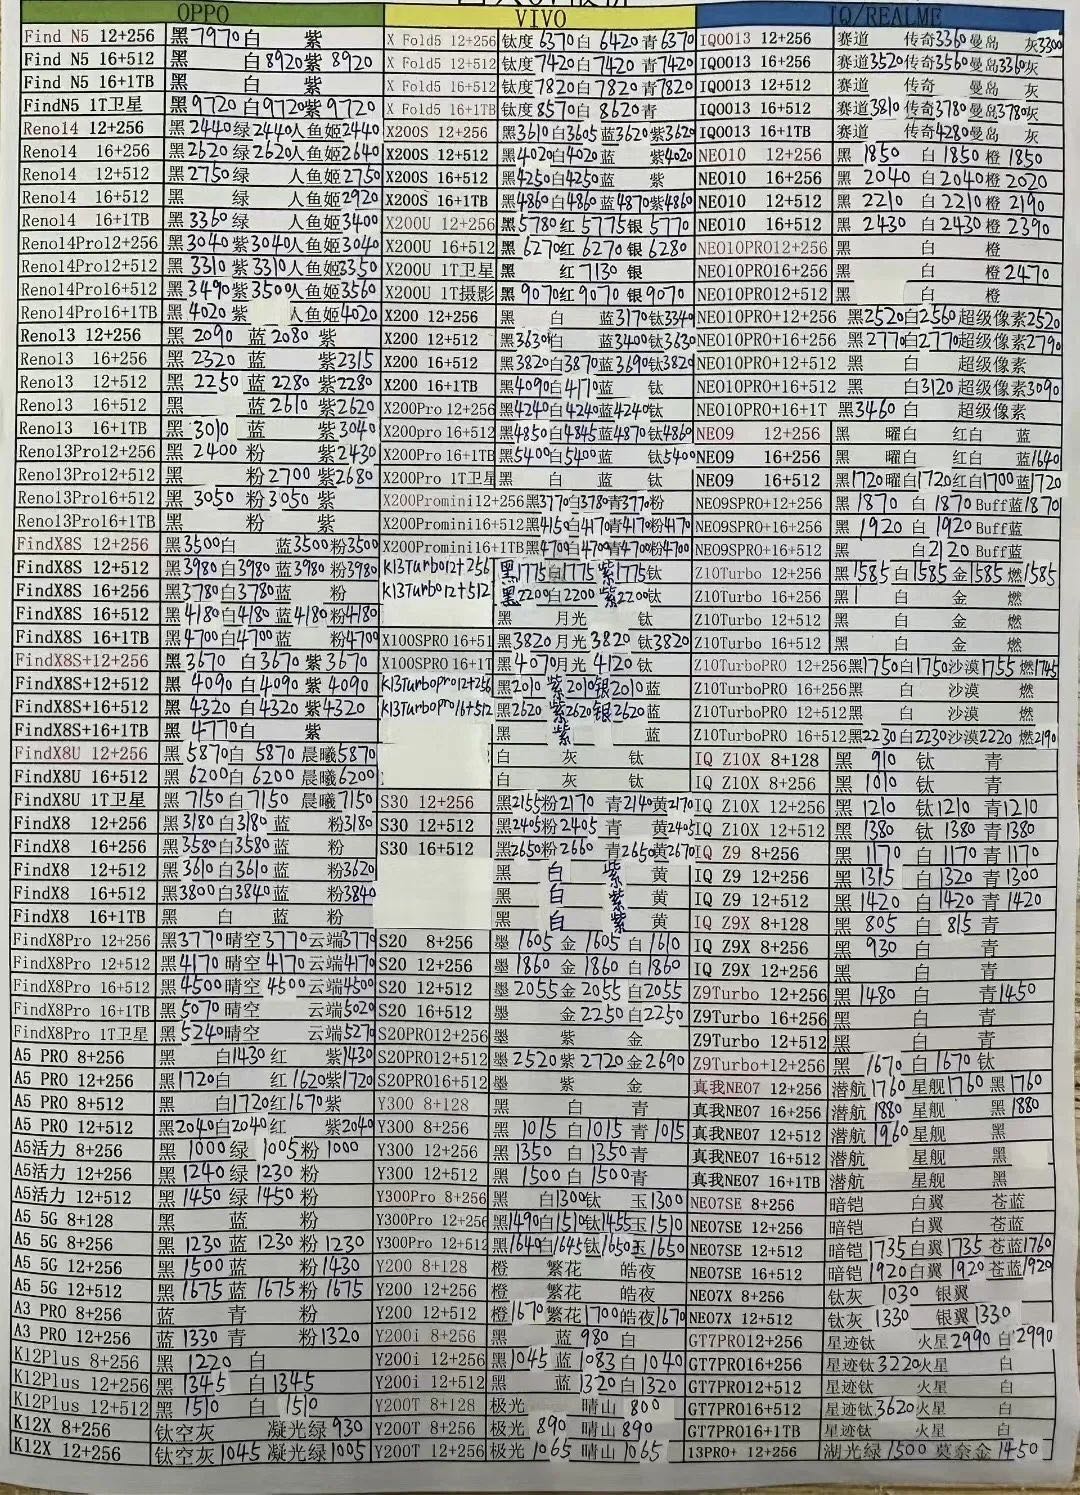 OPPO
Find N5 12+256 黑7970白 紫
Find N5 16+512 黑 白8920紫 8920
Find N5 16+1TB 黑 白 紫
FindN5 1T卫星 黑9720 白9720紫9720
Reno14 12+256 黑2440绿2440人鱼姬2440
Reno14 16+256 黑2620绿2620人鱼姬2640
Reno14 12+512 黑2750绿 人鱼姬2750
Reno14 16+512 黑 绿 人鱼姬2920
Reno14 16+1TB 黑3360绿 人鱼姬3400
Reno14Pro12+256 黑3040紫3040人鱼姬3040
Reno14Pro12+512 黑3310紫3310人鱼姬3350
Reno14Pro16+512 黑3490紫3500人鱼姬3560
Reno14Pro16+1TB 黑4020紫 人鱼姬4020
Reno13 12+256 黑2090 蓝2080 紫
Reno13 16+256 黑2320 蓝 紫2315
Reno13 12+512 黑2250 蓝2280 紫2280
Reno13 16+512 黑 蓝2610 紫2620
Reno13 16+1TB 黑3010 蓝 紫3040
Reno13Pro12+256 黑2400 粉 紫2430
Reno13Pro12+512 黑 粉2700紫2680
Reno13Pro16+512 黑3050 粉3050紫
Reno13Pro16+1TB 黑 粉 紫
FindX8S 12+256 黑3500白 蓝3500粉3500
FindX8S 12+512 黑3980白3980蓝3980 粉3980
FindX8S 16+256 黑3780白3780蓝 粉
FindX8S 16+512 黑4180白4180蓝4180粉4180
FindX8S 16+1TB 黑4700白4700蓝 粉4700
FindX8S+12+256 黑3670 白3670紫3670
FindX8S+12+512 黑4090 白4090紫4090
FindX8S+16+512 黑4320 白4320紫4320
FindX8S+16+1TB 黑4770白 紫
FindX8U 12+256 黑5870白 5870晨曦5870
FindX8U 16+512 黑6200白6200晨曦6200
FindX8U 1T卫星 黑7150白7150 晨曦7150
FindX8 12+256 黑3180白3180蓝 粉3180
FindX8 16+256 黑3580白3580蓝 粉
FindX8 12+512 黑3610白3610蓝 粉3620
FindX8 16+512 黑3800白3840蓝 粉3840
FindX8 16+1TB 黑 白 蓝 粉
FindX8Pro 12+256 黑3770晴空3770云端3770
FindX8Pro 12+512 黑4170晴空4170云端4170
FindX8Pro 16+512 黑4500晴空4500云端4500
FindX8Pro 16+1TB 黑5070晴空 云端5020
FindX8Pro 1T卫星 黑5240晴空 云端5270
A5 PRO 8+256 黑 白1430红 紫1430
A5 PRO 12+256 黑1720白 红1620紫1720
A5 PRO 8+512 黑 白1720红1670紫
A5 PRO 12+512 黑2040白2040红 紫2040
A5活力 8+256 黑1000绿 1005粉1000
A5活力 12+256 黑1240绿1230粉
A5活力 12+512 黑1450绿1450粉
A5 5G 8+128 黑 蓝 粉
A5 5G 8+256 黑1230蓝1230粉1230
A5 5G 12+256 黑1500蓝 粉1430
A5 5G 12+512 黑1675蓝1675粉1675
A3 PRO 8+256 蓝 青 粉
A3 PRO 12+256 蓝1330青 粉1320
K12Plus 8+256 黑1220 白
K12Plus 12+256 黑1345 白1345
K12Plus 12+512 黑1510 白 1510
K12X 8+256 钛空灰 凝光绿930
K12X 12+256 钛空灰1045凝光绿1005
VIVO
X Fold5 12+256 钛度6370白6420青6370
X Fold5 12+512 钛度7420白7420青7420
X Fold5 16+512 钛度7820白7820青7820
X Fold5 16+1TB 钛度8570白8620青
X200S 12+256 黑3610白3605蓝3620紫3620
X200S 12+512 黑4020白4020蓝 紫4020
X200S 16+512 黑4250白4250蓝 紫
X200S 16+1TB 黑4860白4860蓝4870紫4860
X200U 12+256 黑5780红5775银5770
X200U 16+512 黑6270红6270银6280
X200U 1T卫星 黑 红7130银
X200U 1T摄影 黑9070红9070 银9070
X200 12+256 黑 白 蓝3170钛3340
X200 12+512 黑3630白 蓝3400钛3630
X200 16+512 黑3820白3870蓝3690钛3820
X200 16+1TB 黑4090白4170蓝 钛
X200Pro 12+256 黑4240白4240蓝4240钛
X200pro 16+512 黑4850白4845蓝4870钛4860
X200Pro 16+1TB 黑5400白5400蓝 钛5400
X200Pro 1T卫星 黑 白 蓝 钛
X200Promini12+256 黑3770白3780青3770粉
X200Promini16+512 黑4150白4170青4170粉4170
X200Promini16+1TB 黑4700白4700青4700粉4700
K13Turbo12+256 黑1775白1775紫1775钛
K13Turbo12+512 黑2200白2200紫2200钛
黑 月光 钛
X100SPRO 16+51 黑3820月光3820钛3820
X100SPRO 16+1T 黑4070月光4120钛
K13Turbopro12+256 黑2010紫2010银2010蓝
K13Turbopro16+512 黑2620紫2620银2620蓝
黑 紫 蓝
白 灰 钛
白 灰 钛
S30 12+256 黑2155粉2170青2140黄2170
S30 12+512 黑2405粉2405青 黄2405
S30 16+512 黑2650粉2660青2650黄2670
黑 白 紫 黄
黑 白 紫 黄
黑 白 紫 黄
S20 8+256 墨1605金1605白1610
S20 12+256 墨1860金1860白1860
S20 12+512 墨2055金2055白2055
S20 16+512 墨 金2250白2250
S20PRO12+256 墨 紫 金
S20PRO12+512 墨2520紫2720金2690
S20PRO16+512 墨 紫 金
Y300 8+128 黑 白 青
Y300 8+256 黑1015白1015青1015
Y300 12+256 黑1350白1350青
Y300 12+512 黑1500白1500青
Y300Pro 8+256 黑 白1300钛 玉1300
Y300Pro 12+256 黑1490白1510钛1455玉1510
Y300Pro 12+512 黑1640白1645钛1650玉1650
Y200 8+128 橙 繁花 皓夜
Y200 12+256 橙 繁花 皓夜
Y200 12+512 橙1670繁花1700皓夜1670
Y200i 8+256 黑 蓝980白
Y200i 12+256 黑1045蓝1083白1040
Y200i 12+512 黑 蓝1320白1320
Y200T 8+128 极光 晴山800
Y200T 8+256 极光890晴山890
Y200T 12+256 极光1065晴山1065
IQ/REALME
IQOO13 12+256 赛道 传奇3360曼岛 灰3300
IQOO13 16+256 赛道3520传奇3560曼岛3360灰
IQOO13 12+512 赛道 传奇 曼岛 灰
IQOO13 16+512 赛道3810传奇3780曼岛3780灰
IQOO13 16+1TB 赛道 传奇4280曼岛 灰
NEO10 12+256 黑1850 白1850橙1850
NEO10 16+256 黑2040 白2040橙2020
NEO10 12+512 黑2210 白2210橙2190
NEO10 16+512 黑2430 白2430橙2390
NEO10PRO12+256 黑 白 橙
NEO10PRO16+256 黑 白 橙2470
NEO10PRO12+512 黑 白 橙
NEO10PRO+12+256 黑2520白2560超级像素2520
NEO10PRO+16+256 黑2770白2770超级像素2790
NEO10PRO+12+512 黑 白 超级像素
NEO10PRO+16+512 黑 白3120超级像素3090
NEO10PRO+16+1T 黑3460白 超级像素
NEO9 12+256 黑 曜白 红白 蓝
NEO9 16+256 黑 曜白 红白 蓝1640
NEO9 16+512 黑1720曜白1720红白1700蓝1720
NEO9SPRO+12+256 黑1870 白1870Buff蓝1870
NEO9SPRO+16+256 黑1920 白1920Buff蓝
NEO9SPRO+16+512 黑 白2120Buff蓝
Z10Turbo 12+256 黑1585白1585金1585燃1585
Z10Turbo 16+256 黑 白 金 燃
Z10Turbo 12+512 黑 白 金 燃
Z10Turbo 16+512 黑 白 金 燃
Z10TurboPRO 12+256 黑1750白1750沙漠1755燃1745
Z10TurboPRO 16+256 黑 白 沙漠 燃
Z10TurboPRO 12+512 黑 白 沙漠 燃
Z10TurboPRO 16+512 黑2230白2230沙漠2220燃2190
IQ Z10X 8+128 黑910 钛 青
IQ Z10X 8+256 黑1010钛 青
IQ Z10X 12+256 黑1210 钛1210青1210
IQ Z10X 12+512 黑1380 钛1380青1380
IQ Z9 8+256 黑1170白1170青1170
IQ Z9 12+256 黑1315 白1320青1300
IQ Z9 12+512 黑1420白1420青1420
IQ Z9X 8+128 黑805 白815青
IQ Z9X 8+256 黑930 白 青
IQ Z9X 12+256 黑 白 青
Z9Turbo 12+256 黑1480白 青1450
Z9Turbo 16+256 黑 白 青
Z9Turbo 12+512 黑 白 青
Z9Turbo+12+256 黑1670白1670钛
真我NEO7 12+256 潜航1760星舰1760黑1760
真我NEO7 16+256 潜航1880星舰 黑1880
真我NEO7 12+512 潜航1960星舰 黑
真我NEO7 16+512 潜航 星舰 黑
真我NEO7 16+1TB 潜航 星舰 黑
NEO7SE 8+256 暗铠 白翼 苍蓝
NEO7SE 12+256 暗铠 白翼 苍蓝
NEO7SE 12+512 暗铠1735白翼1735苍蓝1760
NEO7SE 16+512 暗铠1920白翼1920苍蓝1920
NEO7X 8+256 钛灰1030 银翼
NEO7X 12+512 钛灰1330 银翼1330
GT7PRO12+256 星迹钛 火星2990白2990
GT7PRO16+256 星迹钛3220火星 白
GT7PRO12+512 星迹钛 火星 白
GT7PRO16+512 星迹钛3620火星 白
GT7PRO16+1TB 星迹钛 火星 白
13PRO+ 12+256 湖光绿1500莫奈金1450